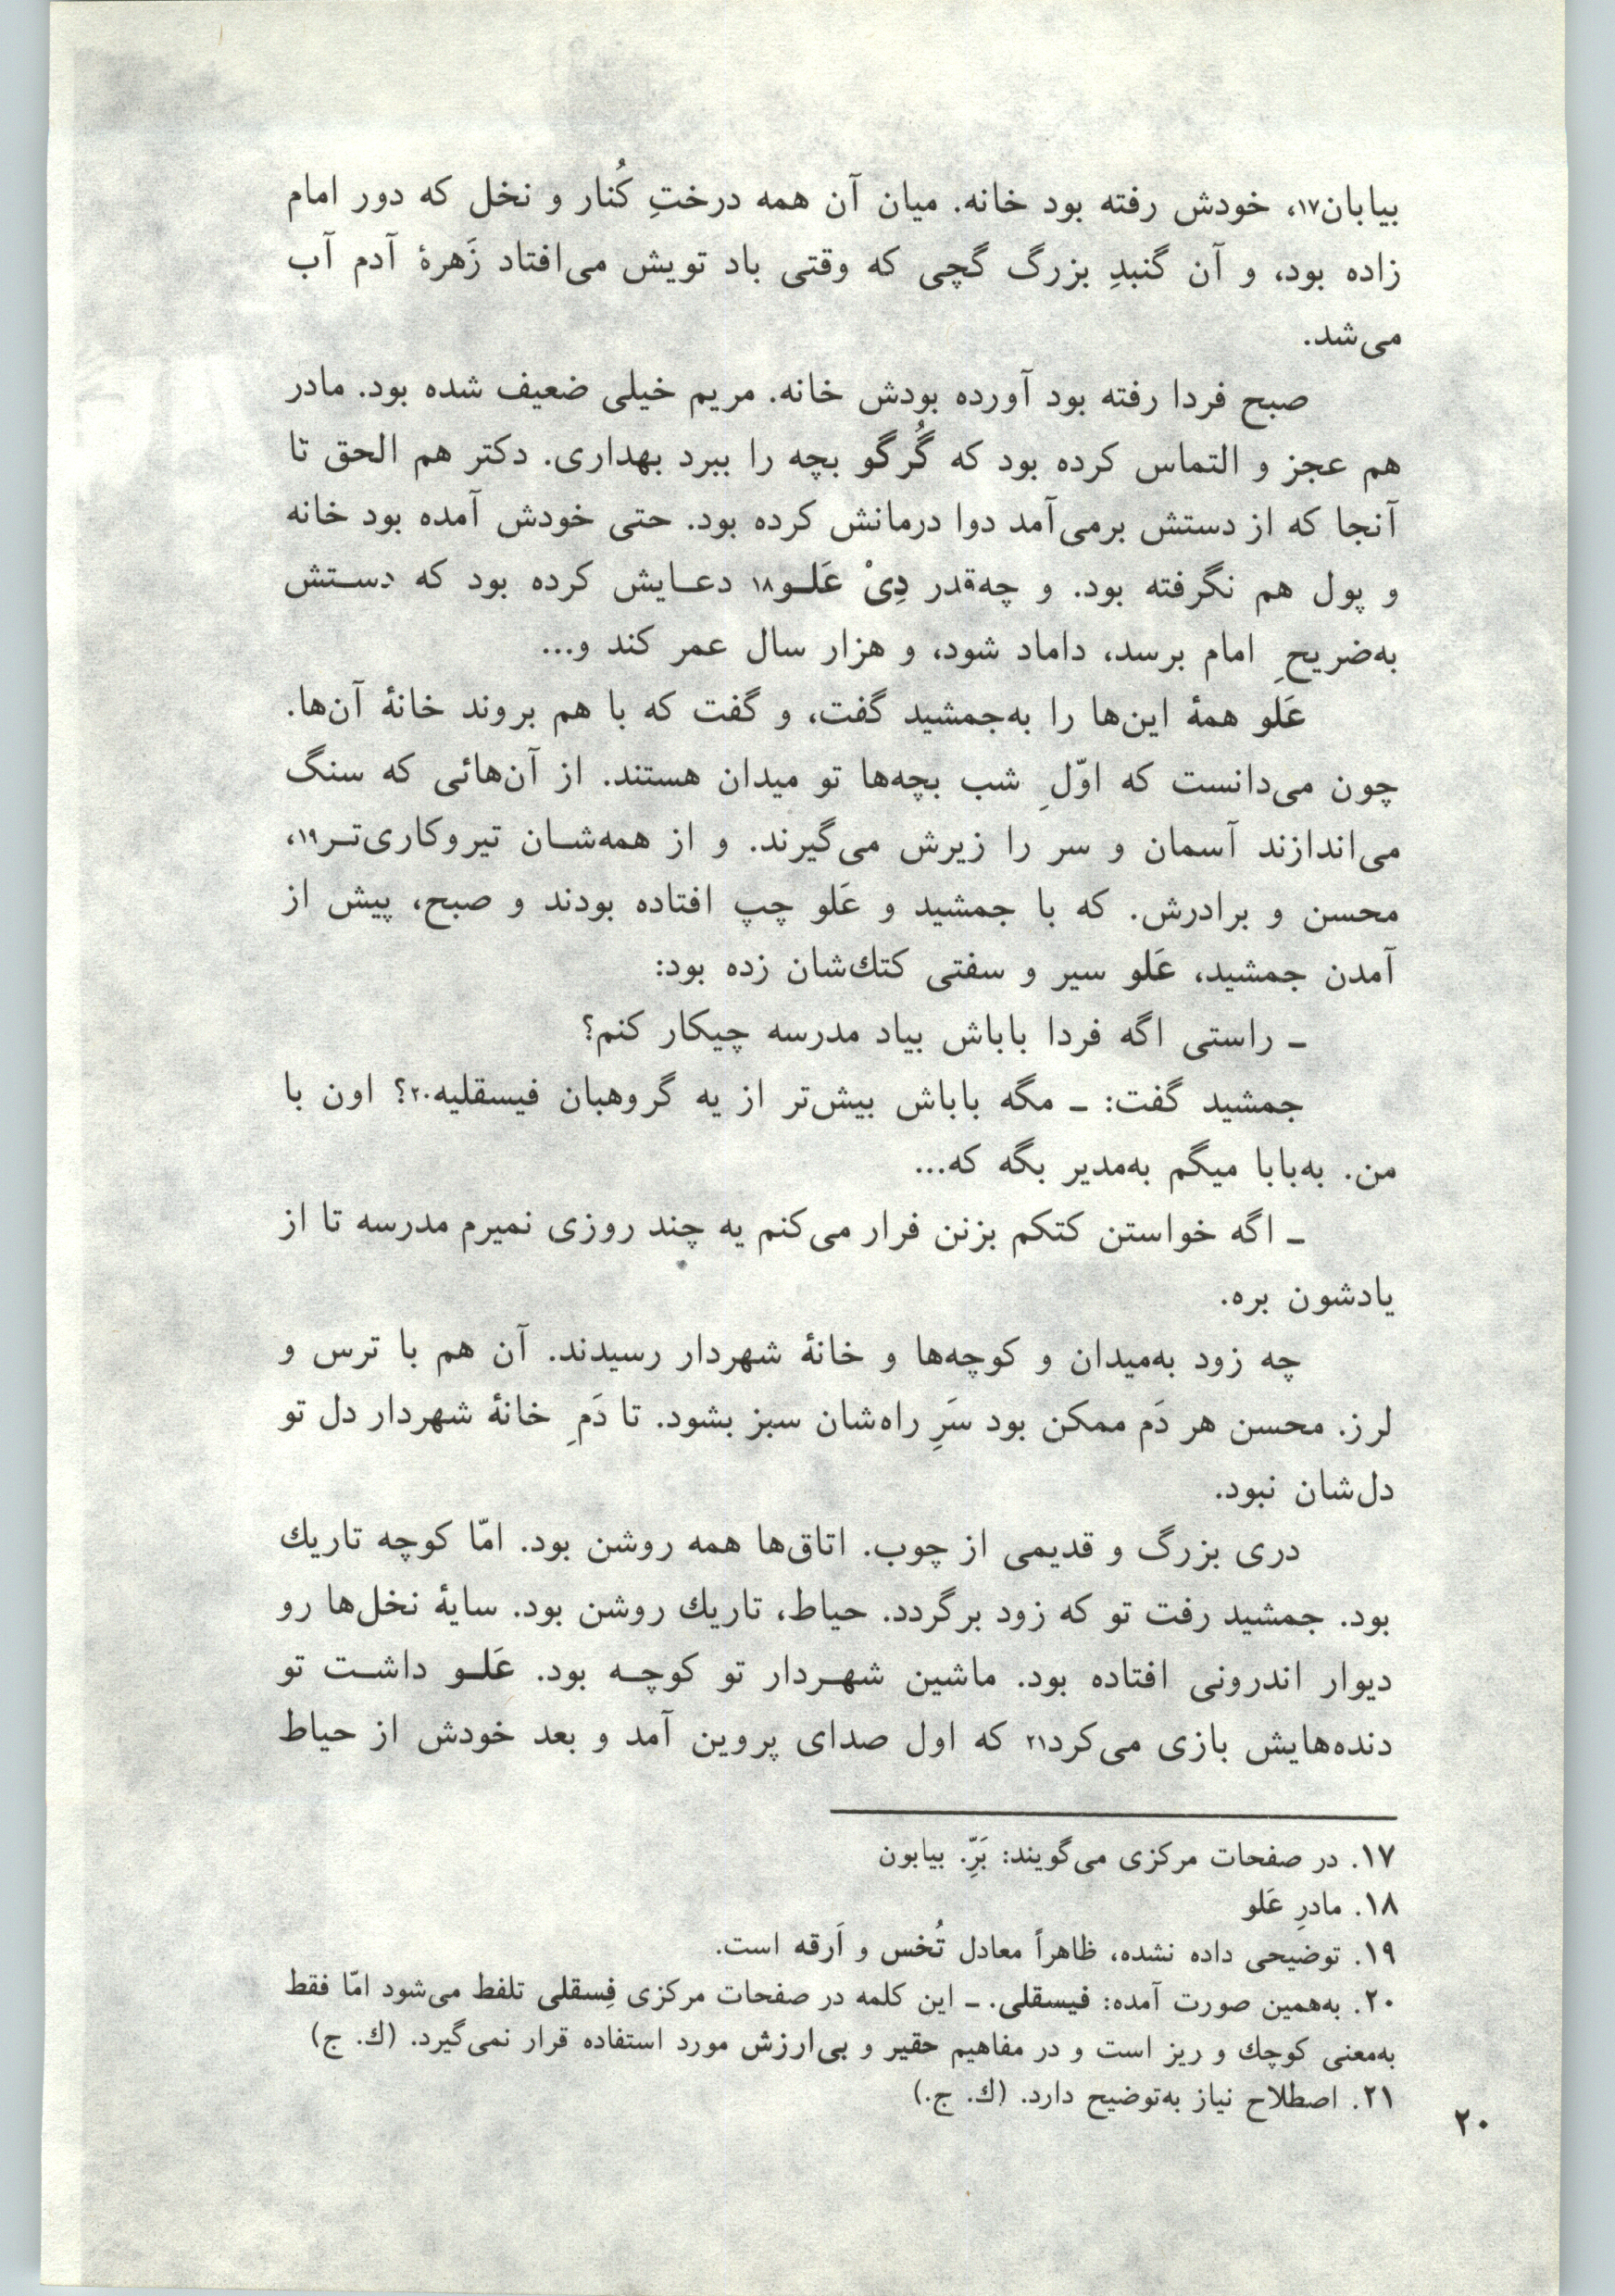 بیابان۱۷، خودش رفته بود خانه. میان آن همه درختِ کُنار و نخل که دور امام
زاده بود، و آن گنبدِ بزرگ گچی که وقتی باد تویش می‌افتاد زَهرهٔ آدم آب
می‌شد.
صبح فردا رفته بود آورده بودش خانه. مریم خیلی ضعیف شده بود. مادر
هم عجز و التماس کرده بود که گُرگو بچه را ببرد بهداری. دکتر هم الحق تا
آنجا که از دستش برمی‌آمد دوا درمانش کرده بود. حتی خودش آمده بود خانه
و پول هم نگرفته بود. و چه‌قدر دِیْ عَلـو۱۸ دعـایش کرده بود که دسـتش
به‌ضریحِ امام برسد، داماد شود، و هزار سال عمر کند و...
عَلو همهٔ این‌ها را به‌جمشید گفت، و گفت که با هم بروند خانهٔ آن‌ها.
چون می‌دانست که اوّلِ شب بچه‌ها تو میدان هستند. از آن‌هائی که سنگ
می‌اندازند آسمان و سر را زیرش می‌گیرند. و از همه‌شـان تیروکاری‌تـر۱۹،
محسن و برادرش. که با جمشید و عَلو چپ افتاده بودند و صبح، پیش از
آمدن جمشید، عَلو سیر و سفتی کتك‌شان زده بود:
ـ راستی اگه فردا باباش بیاد مدرسه چیکار کنم؟
جمشید گفت: ـ مگه باباش بیش‌تر از یه گروهبان فیسقلیه۲۰؟ اون با
من. به‌بابا میگم به‌مدیر بگه که...
ـ اگه خواستن کتکم بزنن فرار می‌کنم یه چند روزی نمیرم مدرسه تا از
یادشون بره.
چه زود به‌میدان و کوچه‌ها و خانهٔ شهردار رسیدند. آن هم با ترس و
لرز. محسن هر دَم ممکن بود سَرِ راه‌شان سبز بشود. تا دَمِ خانهٔ شهردار دل تو
دل‌شان نبود.
دری بزرگ و قدیمی از چوب. اتاق‌ها همه روشن بود. امّا کوچه تاریك
بود. جمشید رفت تو که زود برگردد. حیاط، تاریك روشن بود. سایهٔ نخل‌ها رو
دیوار اندرونی افتاده بود. ماشین شهـردار تو کوچـه بود. عَلـو داشـت تو
دنده‌هایش بازی می‌کرد۲۱ که اول صدای پروین آمد و بعد خودش از حیاط
۱۷. در صفحات مرکزی می‌گویند: بَرِّ. بیابون
۱۸. مادرِ عَلو
۱۹. توضیحی داده نشده، ظاهراً معادل تُخس و اَرقه است.
۲۰. به‌همین صورت آمده: فیسقلی. ـ این کلمه در صفحات مرکزی فِسقلی تلفط می‌شود امّا فقط
به‌معنی کوچك و ریز است و در مفاهیم حقیر و بی‌ارزش مورد استفاده قرار نمی‌گیرد. (ك. ج)
۲۱. اصطلاح نیاز به‌توضیح دارد. (ك. ج.)
۲۰